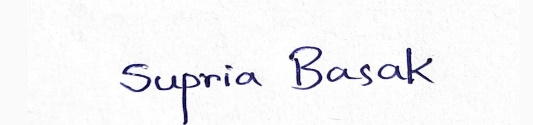 Supria Basak